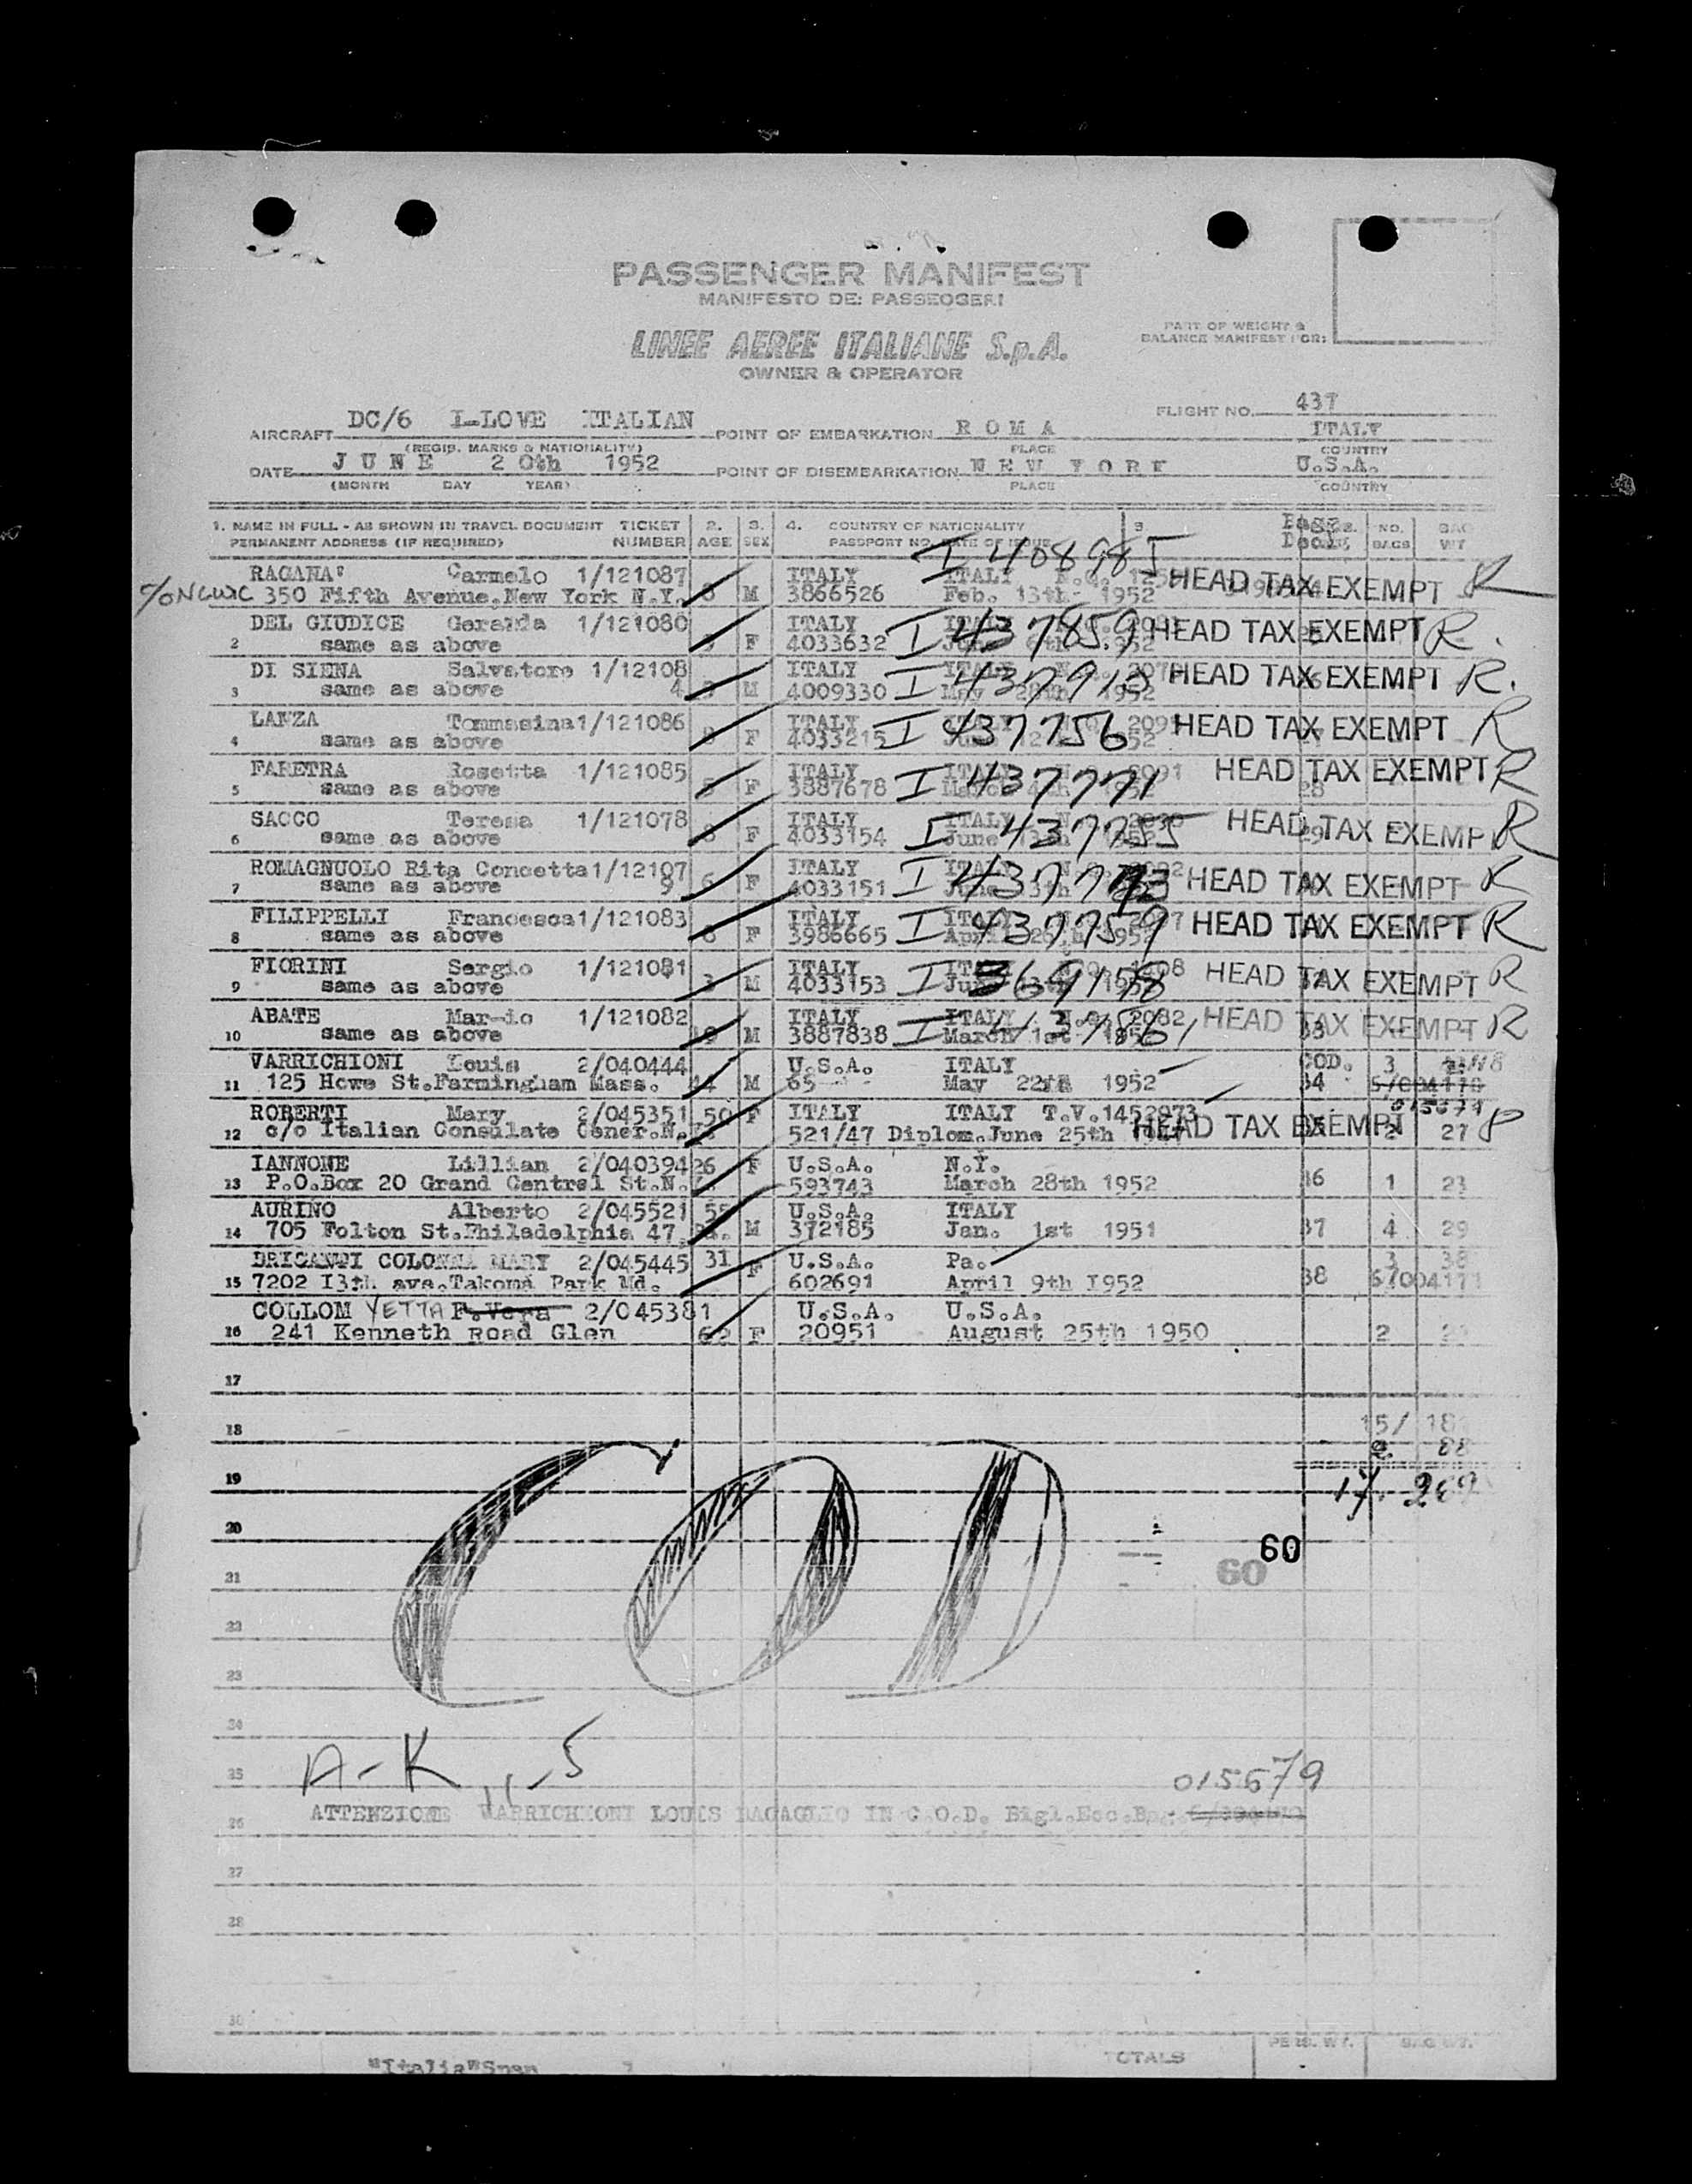 PASSENGER MANIFEST
MANIFESTO DEI PASSEGGERI
LINEE AEREE ITALIANE S.p.A.
OWNER & OPERATOR
PART OF WEIGHT &
BALANCE MANIFEST FOR:
FLIGHT NO. 437
AIRCRAFT DC/6 I-LOVE ITALIAN POINT OF EMBARKATION R O M A ITALY
(REGIS. MARKS & NATIONALITY) PLACE COUNTRY
DATE J U N E 2 0th 1952 POINT OF DISEMBARKATION N E W Y O R K U.S.A.
(MONTH DAY YEAR) PLACE COUNTRY
1. NAME IN FULL - AS SHOWN IN TRAVEL DOCUMENT TICKET 2. 3. 4. COUNTRY OF NATIONALITY 5. NO. BAG
PERMANENT ADDRESS (IF REQUIRED) NUMBER AGE SEX PASSPORT NO. DATE OF ISSUE BAGS WT
I 408985
RAGANA' Carmelo 1/121087 ITALY ITALY HEAD TAX EXEMPT R
c/o NCWC 350 Fifth Avenue,New York N.Y. M 3866526 Feb. 13th- 1952
DEL GIUDICE Geralda 1/121080 ITALY I 437859 HEAD TAX EXEMPT R.
2 same as above F 4033632
DI SIENA Salvatore 1/12108 ITALY ITALY HEAD TAX EXEMPT R.
3 same as above 4 M 4009330 I May 28th 1952
LANZA Tommasina 1/121086 ITALY I 437756 HEAD TAX EXEMPT R
4 same as above F 4033215
FARETRA Rosetta 1/121085 ITALY I 437771 HEAD TAX EXEMPT R
5 same as above F 3887678 28
SACCO Teresa 1/121078 ITALY I 437755 HEAD TAX EXEMP R
6 same as above F 4033154 June 29
ROMAGNUOLO Rita Concetta 1/12107 ITALY HEAD TAX EXEMPT R
7 same as above 9 6 F 4033151
FILIPPELLI Francesca 1/121083 ITALY I 437759 HEAD TAX EXEMPT R
8 same as above F 3986665 April
FIORINI Sergio 1/121081 ITALY I 369158 HEAD TAX EXEMPT R
9 same as above M 4033153
ABATE Mar-io 1/121082 ITALY ITALY 2082 HEAD TAX EXEMPT R
10 same as above M 3887838 March 1st 33
VARRICHIONI Louis 2/040444 U.S.A. ITALY COD. 3
11 125 Howe St.Farmingham Mass. 44 M 65 May 1952 34
ROBERTI Mary 2/045351 50 F ITALY ITALY T.V.1452973 015679
12 c/o Italian Consulate Gener.N. 521/47 Diplom.June 25th HEAD TAX EXEMPT 2 27
IANNONE Lillian 2/040394 26 F U.S.A. N.Y.
13 P.O.Box 20 Grand Central St.N. 593743 March 28th 1952 36 1 23
AURINO Alberto 2/045521 55 U.S.A. ITALY
14 705 Folton St.Philadelphia 47 M 372185 Jan. 1st 1951 37 4 29
BRIGANTI COLONNA MARY 2/045445 31 F U.S.A. Pa. 3 38
15 7202 13th ave.Takoma Park Md. 602691 April 9th 1952 38 6/004171
COLLOM YETTA F. Vera 2/045381 U.S.A. U.S.A.
16 241 Kenneth Road Glen 62 F 20951 August 25th 1950 2
17
18 15/ 18
2 88
19 17. 269
20 60
60
21
22
23
COD
24
25 A-K 015679
26 ATTENZIONE VARRICHIONI LOUIS BAGAGLIO IN C.O.D. Bigl.Ecc.Bag.
27
28
30
TOTALS PERS. WT. BAG WT.
"Italia"Span